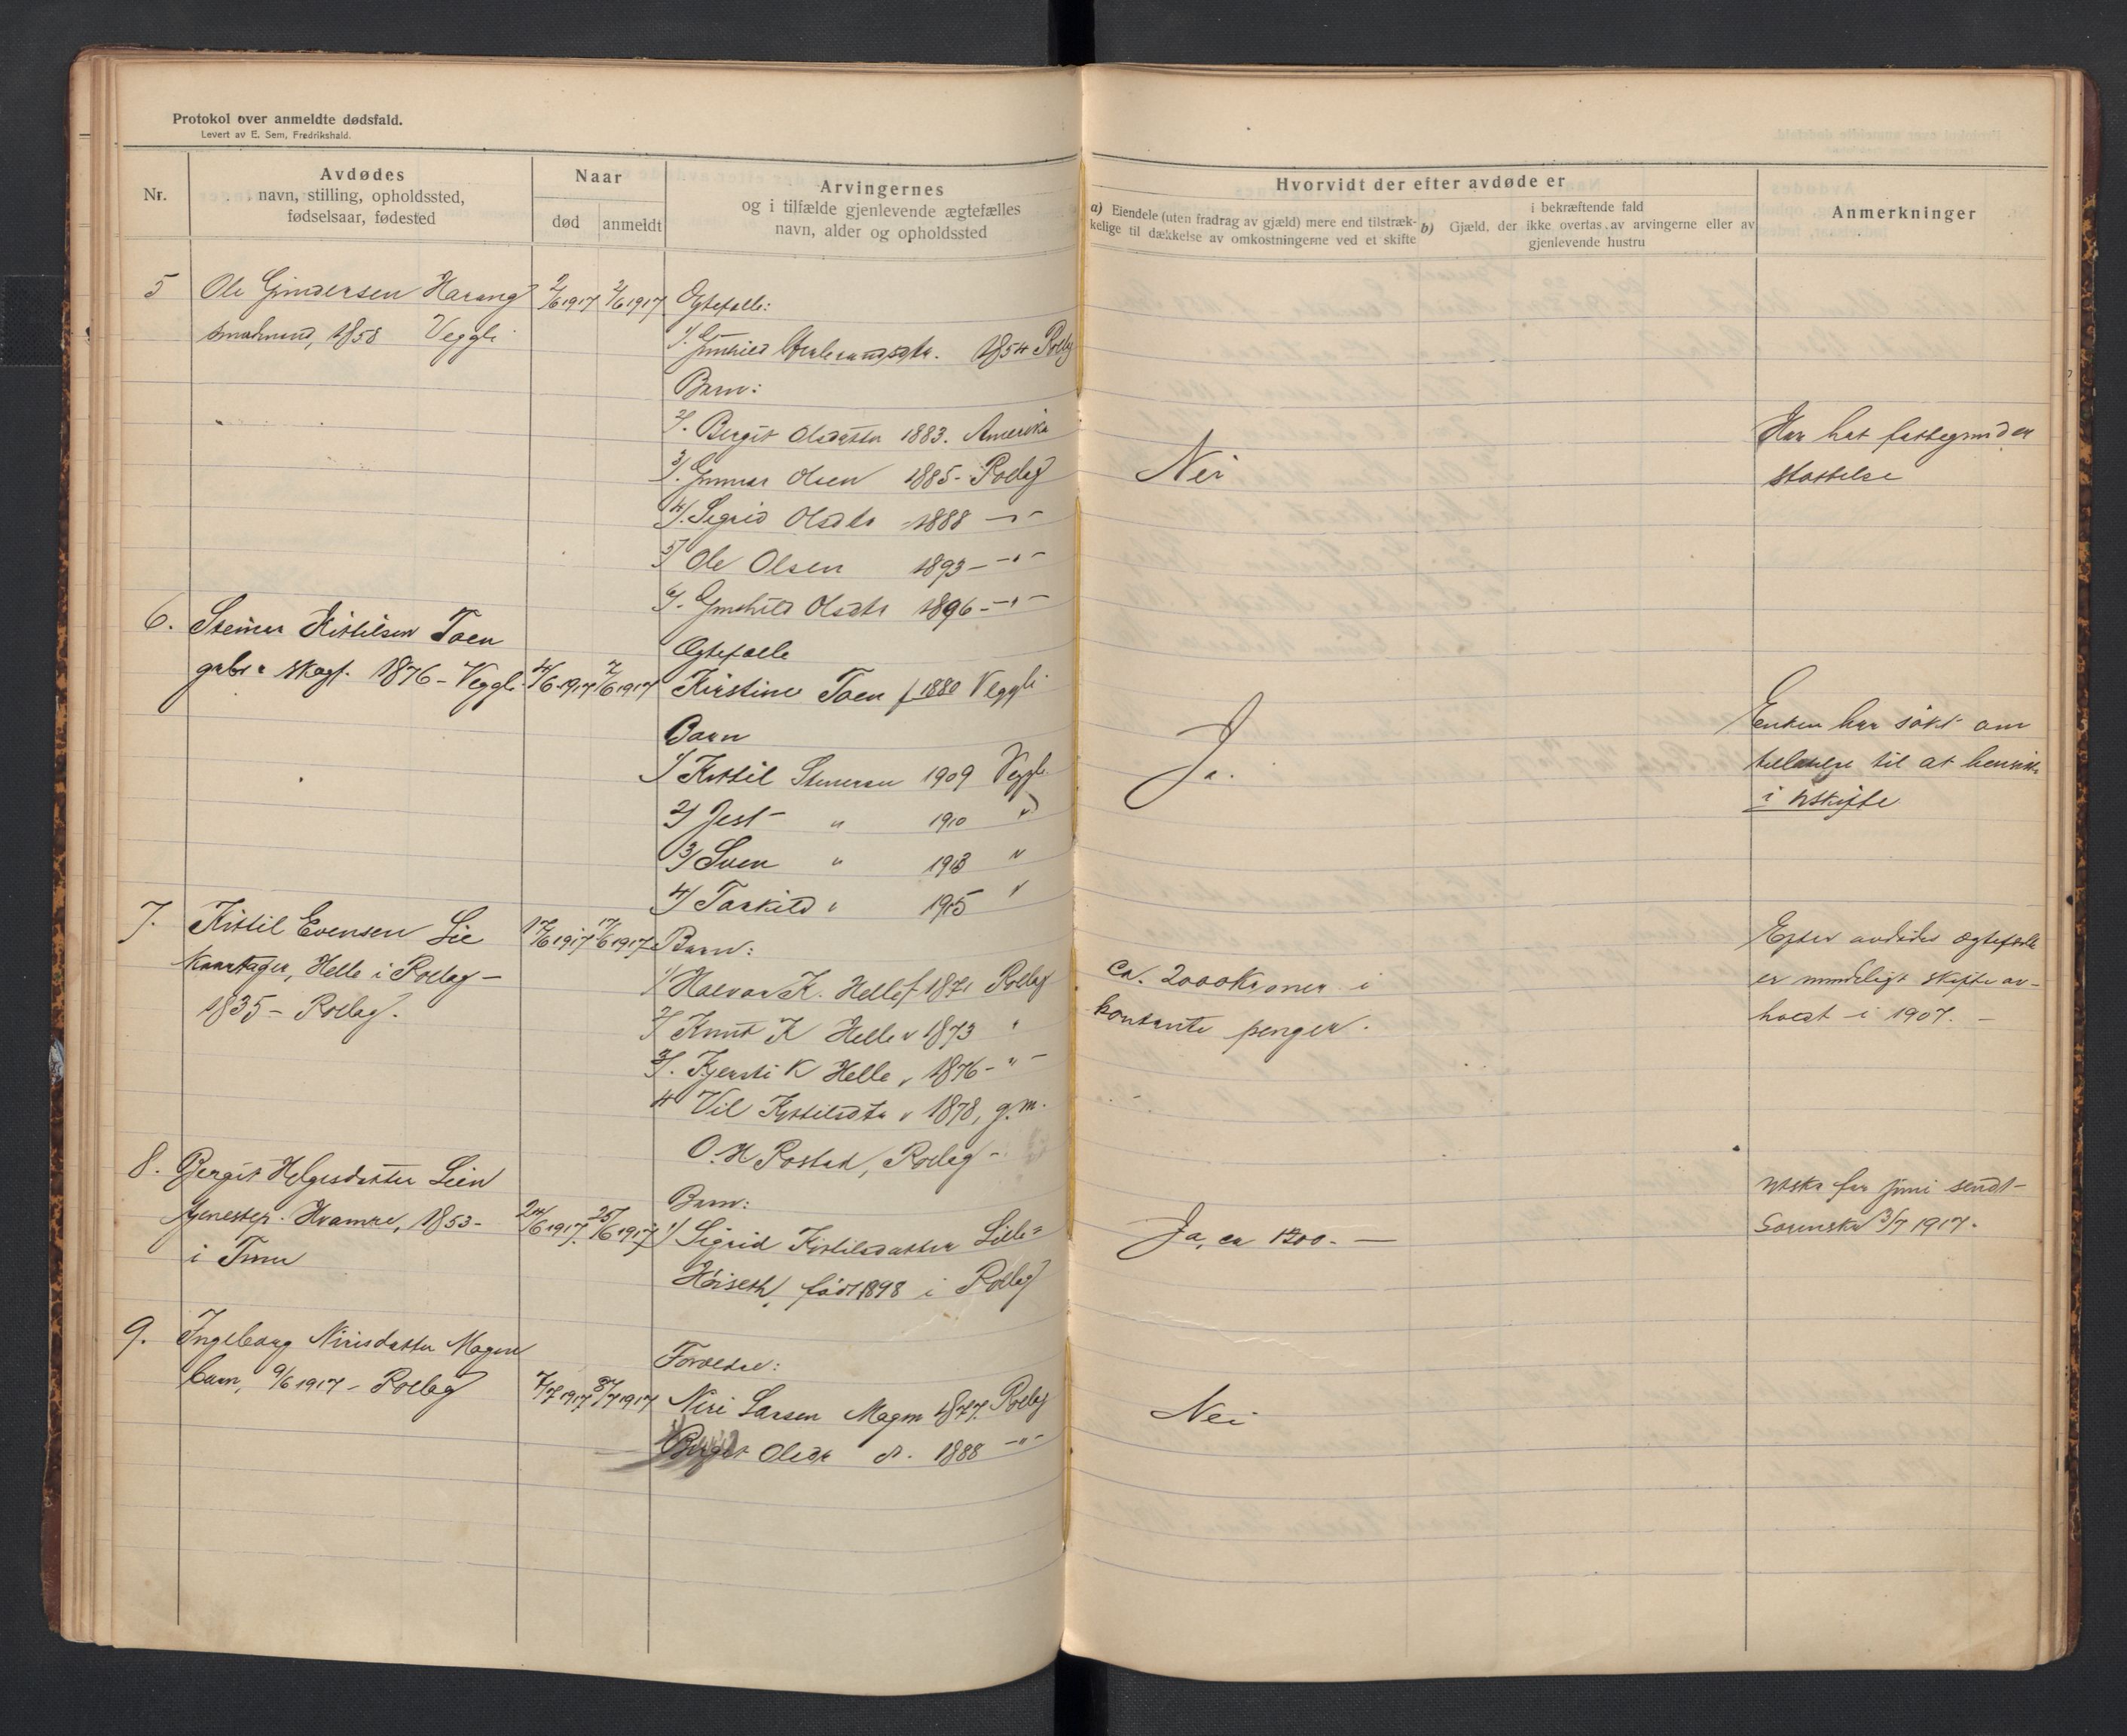 Protokol over anmeldte dødsfald.
Levert av E. Sem, Fredrikshald.
Nr.
Avdødes
navn, stilling, opholdssted,
fødselsaar, fødested
Naar
død
anmeldt
Arvingernes
og i tilfælde gjenlevende ægtefælles
navn, alder og opholdssted
Hvorvidt der efter avdøde er
a) Eiendele (uten fradrag av gjæld) mere end tilstræk-
kelige til dækkelse av omkostningerne ved et skifte
i bekræftende fald
b) Gjæld, der ikke overtas av arvingerne eller av
gjenlevende hustru
Anmerkninger
5 Ole Gundersen Harang 2/6 1917 2/6 1917 Egtefælle:
1858 Veggli
1. Gunhild 1854 Rollag
Barn:
2/. Bergit Olsdatter 1883. Amerika
3/. Gunnar Olsen 1885- Rollag
Nei
Har hat fattegrund
støttelse
4/. Sigrid Olsdtr 1888 -"-
5/ Ole Olsen 1893 - -"-
6/. Gunhild Olsdtr 1896 - -"-
6. Steinar Kittilsen Toen
Ægtefælle
gbr. skogt. 1876 - Veggli 4/6 1917 7/6 1917 Kirstine Toen f 1880 Veggli
Barn
1/ Kittil Stenersen 1909 Veggli
2/ Jest - " 1910 "
3/ Sven " 1913 "
4/ Torkild " 1915 "
Ja.
Enken har søkt om
tilladelse til at hensitte
i uskifte
7. Kittil Evensen Lie 17/6 1917 17/6 1917 Barn:
Kaartager, Helle i Rollag -
1835 - Rollag.
1/ Halvor K. Helle f 1871 Rollag
2/ Knut K Helle " 1873 "
3/. Kjersti K Helle " 1876 - " -
4 Vil Kittilsdtr " 1878, g.m.
O. H Rostad, Rollag -
ca. 2000 Kroner i
kontante penger.
Efter avdødes ægtefælle
er mindeligt skifte av-
holdt i 1907. -
8. Bergit Helgesdatter Lien
tjenestep. Hvamre, 1853- 24/6 1917. 25/6 1917
Barn:
1/ Sigrid Kittilsdatter Lille=
Høiseth, født 1898 i Rollag
Ja, ca 1200. -
for juni sendt
Sorenskr 3/7 1917.
9. Ingeborg Nirisdatter Mogen
barn, 9/6 1917 - Rollag 7/7 1917 8/7 1917
Foreldre:
Niri Larsen Mogen 1877. Rollag
Bergit Olsdr 1888 -"-
Nei